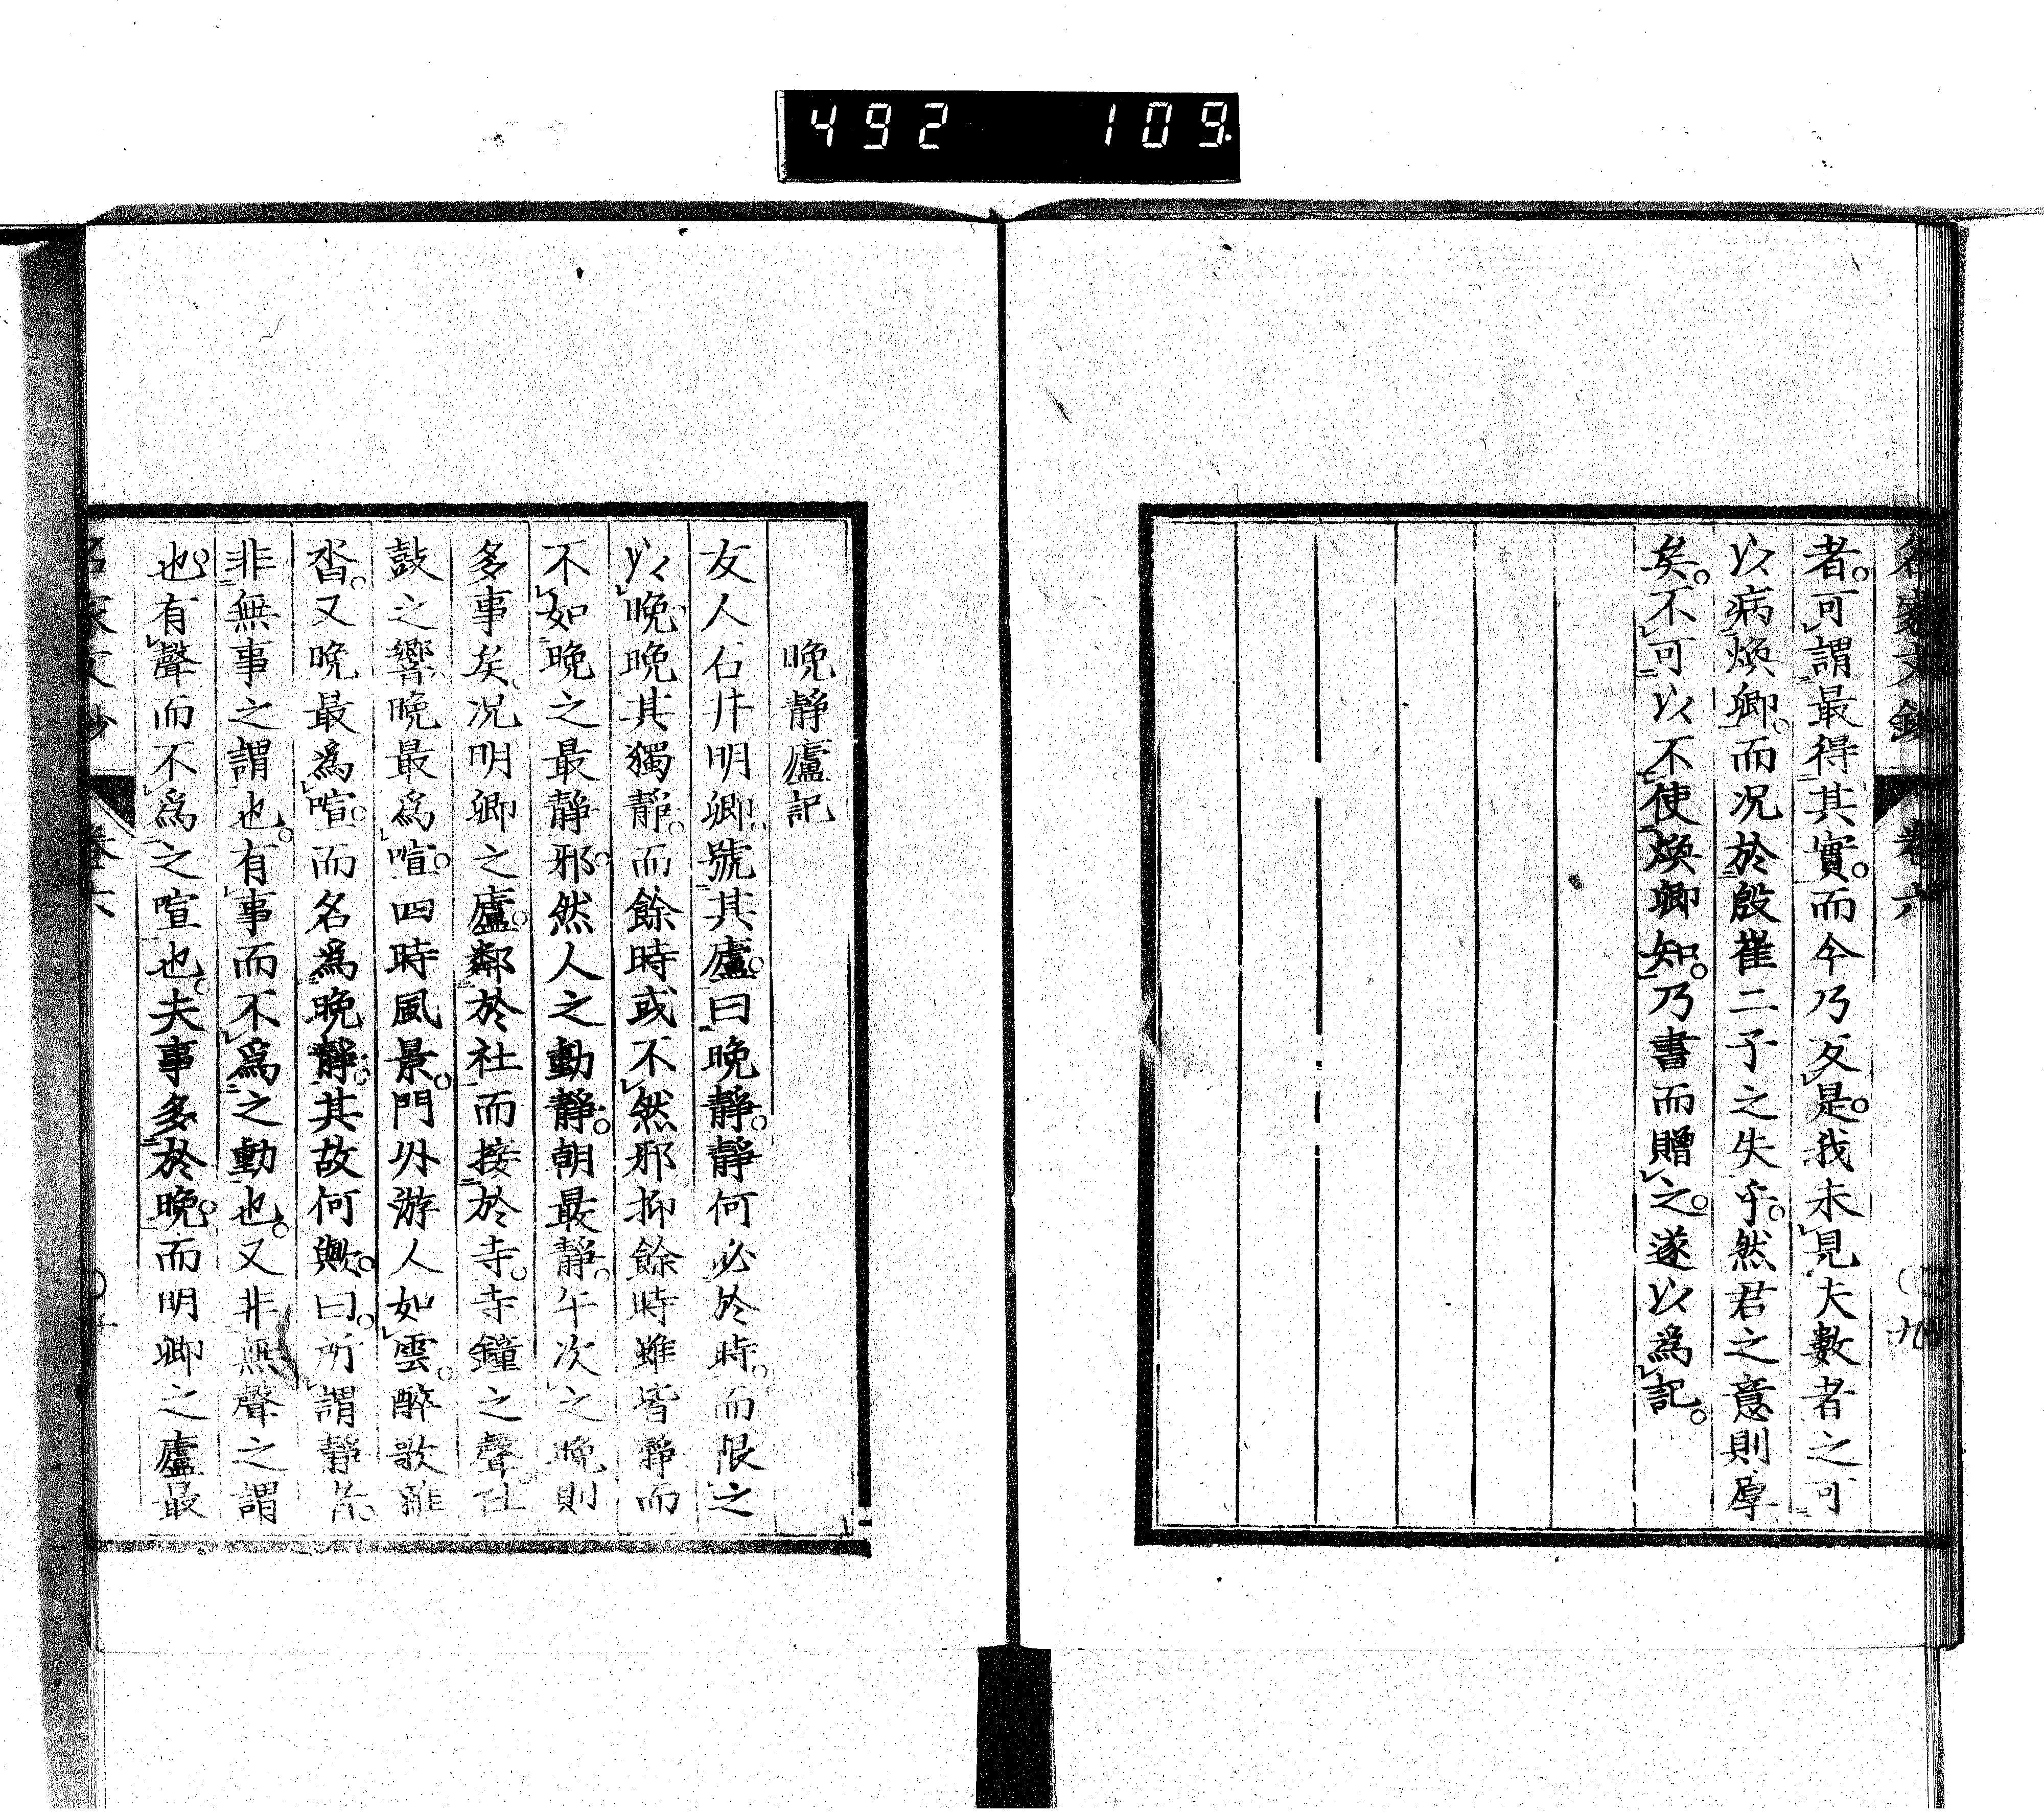 492 109
名家文鈔 卷六 九
者。可謂最得其實。而今乃反是。我未見夫數者之可
以病煥卿。而况於殷崔二子之失乎。然君之意則厚
矣。不可以不使煥卿知。乃書而贈之。遂以爲記。
晚靜廬記
友人石井明卿。號其廬。曰晚靜。靜何必於時。而限之
以晚。晚其獨靜。而餘時或不然邪。抑餘時雖皆靜。而
不如晚之最靜邪。然人之動靜。朝最靜。午次之。晚則
多事矣。况明卿之廬。鄰於社而接於寺。寺鐘之聲。社
鼓之響。晚最爲喧。四時風景。門外游人如雲。醉歌雜
沓。又晚最爲喧。而名爲晚靜。其故何歟。曰。所謂靜者。
非無事之謂也。有事而不爲之動也。又非無聲之謂
也。有聲而不爲之喧也。夫事多於晚。而明卿之廬最
名家文鈔 卷六